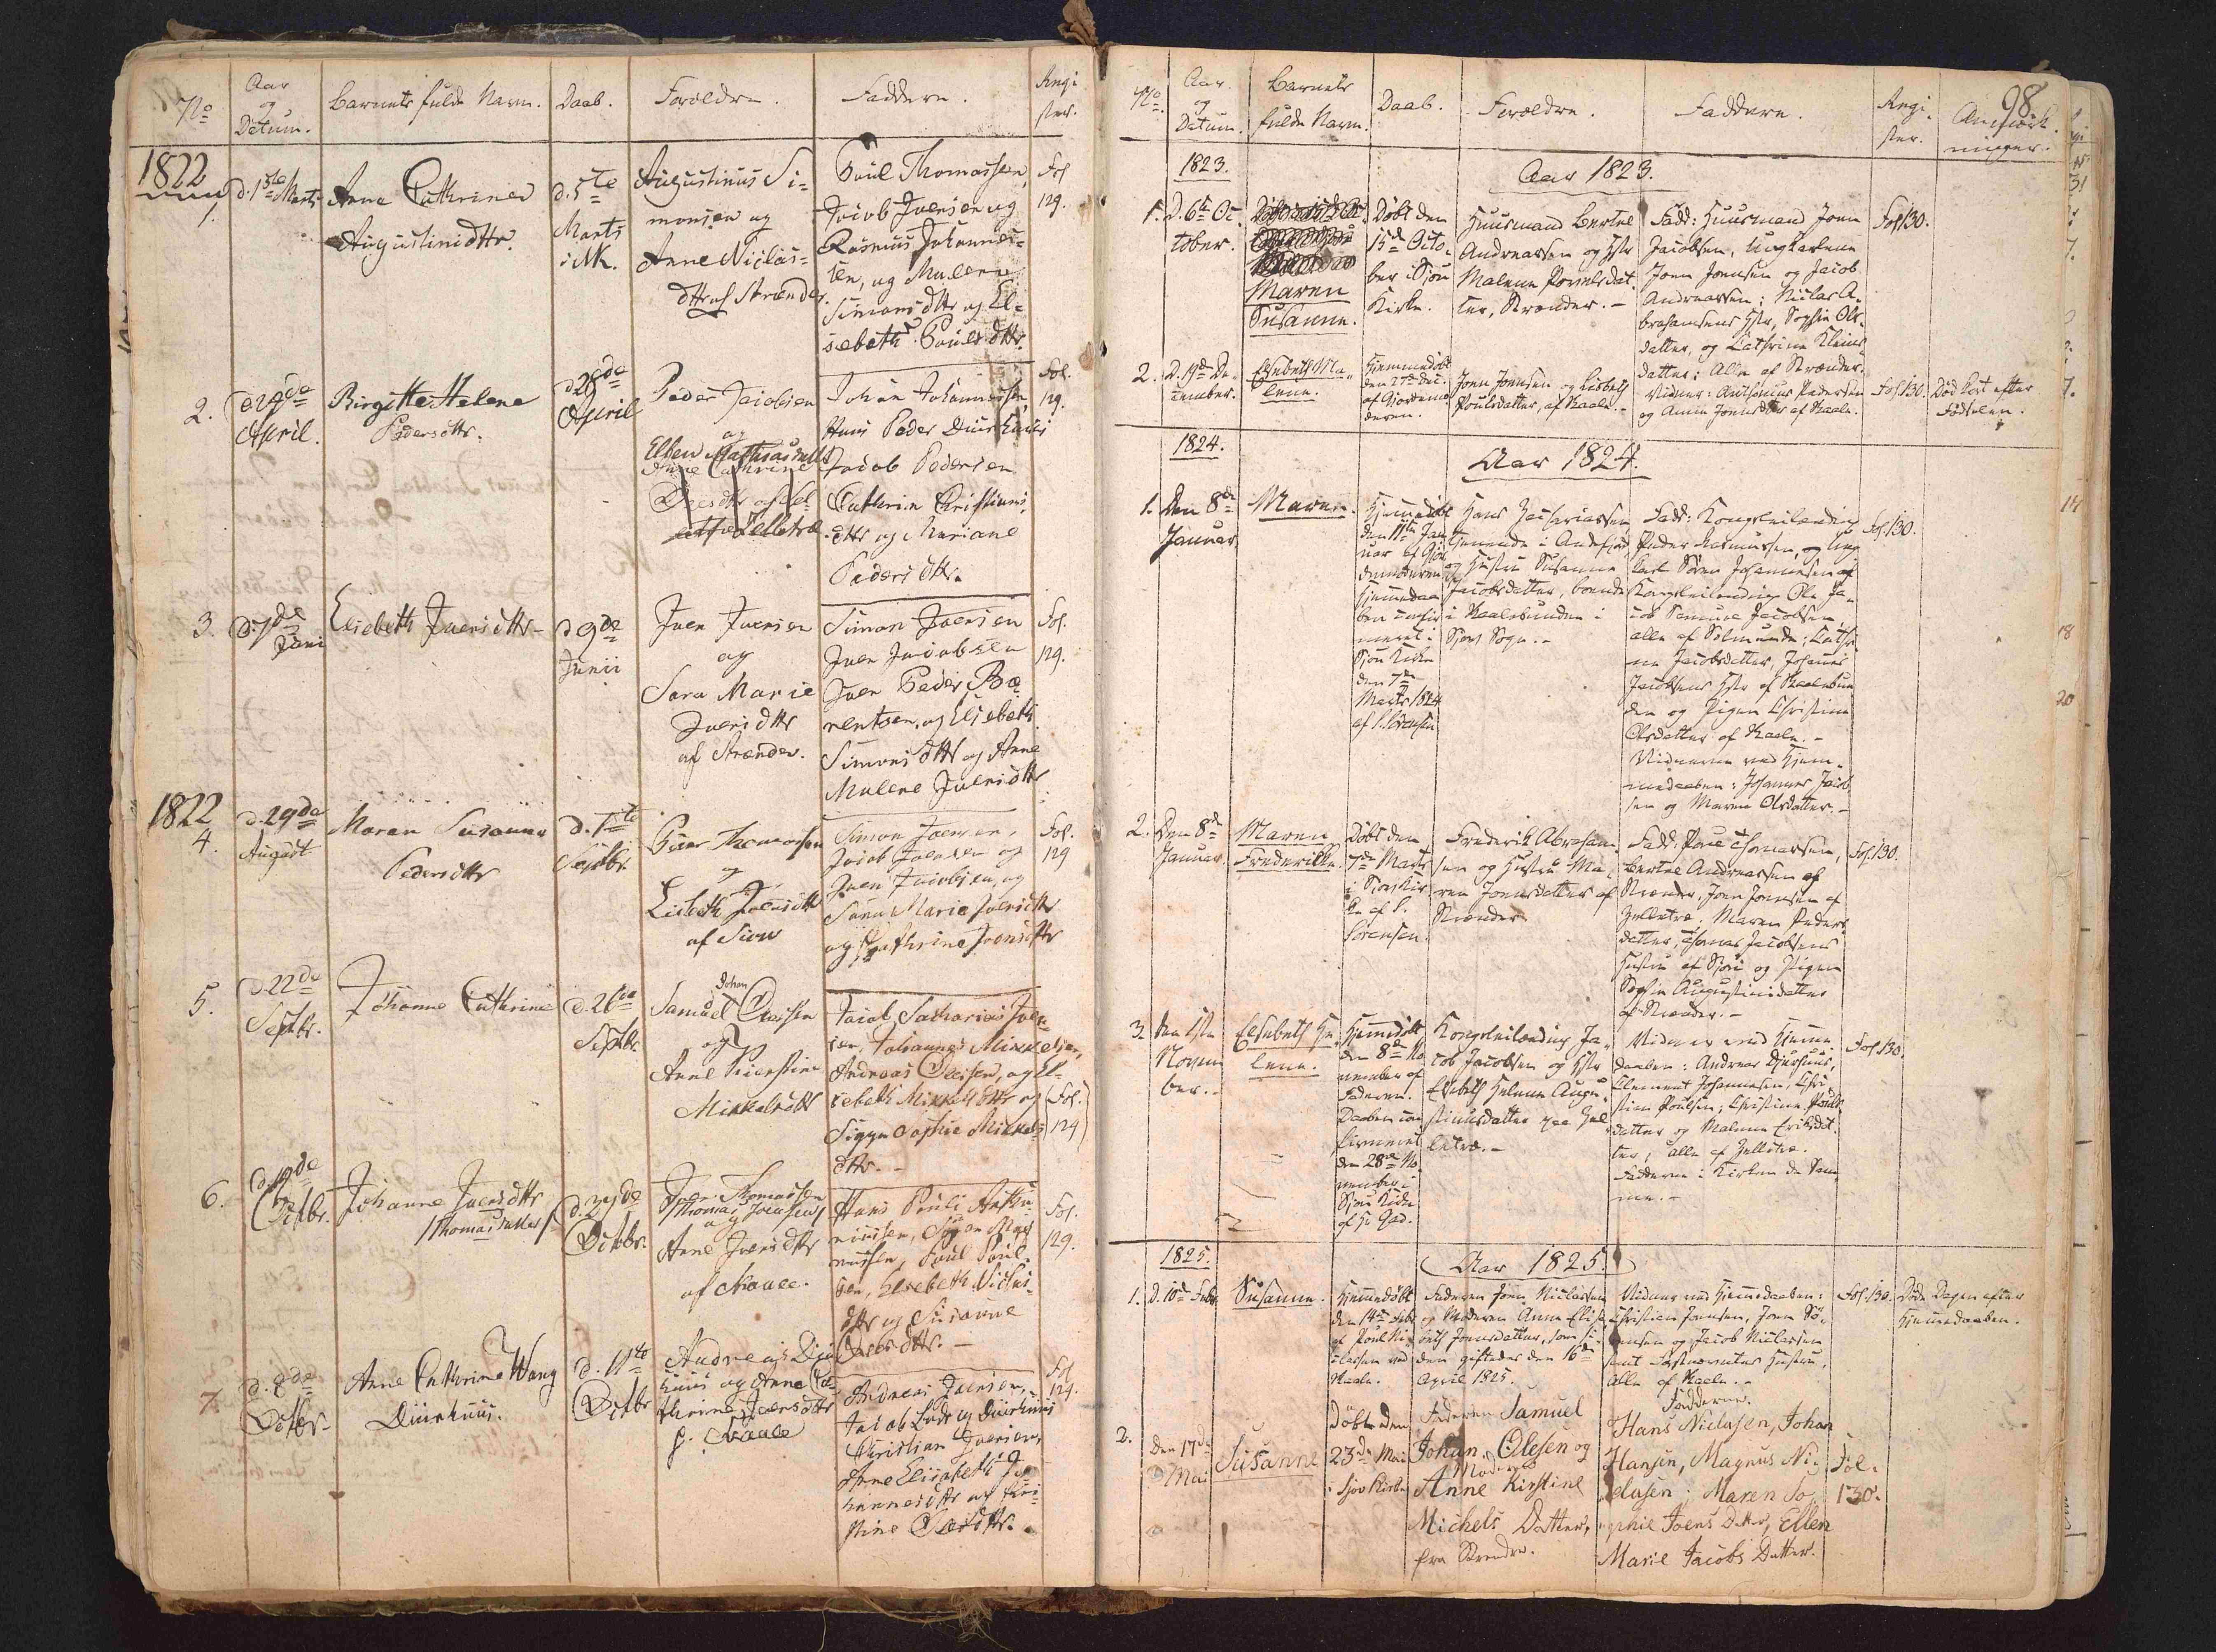 No
Aar
og
Datum.
Barnets fulde Navn.
Daab.
Forældre.
Faddere.
Regi
ster.
1822
1.
d. 1ste Marts
Anne Cathrine
Augustinidttr.
d. 5te
Marts
i SK.
Augustinus Si-
monsen og
Anne Niclas-
dttr af Strænder.
Poul Thomassen,
Jacob Joensen og
Rasmus Johannes-
sen, og Malene
Simonsdttr og El-
sebeth Poulsdttr.
Fol
129.
2.
April.
Birgitte Helene
Pedersdttr.
d 28de
April
Peder Jacobsen
og
Ellen Mathiasdatter
Anne Cathrine
Johan Johannessen,
Hans Peder Diurhuus
Jacob Pedersen
Cathrin Christians
dttr og Mariane
Pedersdttr.
Fol.
129.
3.
Juni
Elsebeth Joensdttr
d 9de
Junii
Joen Joensen
og
Sara Marie
Joensdttr
af Strænder.
Simon Joensen
Joen Jacobsen
Joen Peder Be-
rentsen, og Elsebeth
Simonsdttr og Anne
Malene Joensdttr
Fol.
129.
1822
4.
d. 29de
August
Maren Susanne
Pedersdttr
d. 1ste
Septbr.
Peder Thomassen
og
Lisbeth Joensdttr
af Siov
Simon Joensen,
Jacob Joensen og
Joen Jacobsen, og
Sara Marie Joensdttr
og Cathrine Joensdttr
Fol.
129
5.
d. 22de
Septbr.
Johanne Cathrine
d. 26de
Septbr.
Johan
Samuel Olessen
og
Anne Kierstine
Mikkelsdttr
Jacob Zacharias Joen-
sen, Johannes Mikkelsen,
Andreas Olessen, og El-
sebeth Mikkelsdttr og
Sophie Mikkels
dttr.
Fol.
129
6.
Octbr.
Johanne Joensdttr
/Thomasdatter/
d. 27de
Octbr.
Joen Thomassen
/Thomas Joensen/
og
Anne Joensdttr
af Kaale.
Hans Pauli
Poul Poul-
sen, Elsebeth Niclas-
dttr og Susanne
dttr.
Fol.
129.
7.
d. 8de
Octbr.
Anne Cathrine Wang
Diurhuus.
d. 11te
Octbr
Andreas Diur
huus og Anne Ca-
thrine Joensdttr
p. Kaale
Andreas Joensen,
Jacob Diurhuus
Christian Joensen,
Anne Elisabeth Jo-
hannesdttr og Kir-
stine Olesdttr.
Fol
129.
98.
No.
Aar.
og
Datum.
Barnets
fulde Navn.
Daab.
Forældre.
Faddere.
Regi-
ster.
Anmærk-
ninger.
1823.
Aar 1823.
1.
D. 6te Oc
tober.
Maren
Susanne.
Døbt den
15de Octo-
ber i Sjou
Kirke.
Huusmand Bertel
Andreassen og Hstr
Malene Poulsdat-
ter, Strænder.
Fadd: Huusmand Joen
Jacobsen, Ungkarlene
Joen Joensen og Jacob
Andreassen; Niclas A-
brahamsens Hstr, Sophie Ols-
datter, og Cathrine
datter; Alle af Strænder.
Fol 130.
2.
D. 19de De-
cember.
Elsebeth Ma-
lene.
Hjemmedøbt
den 27de Dec.
af Gjordemo-
deren.
Joen Joensen og Lisbeth
Poulsdatter, af Kaale.
Vidner: Pedersen
og Anne Joensdttr af Kaale.
Fol. 130.
Død kort efter
Fødselen.
1824.
Aar 1824.
1.
Den 8de
Januar.
Maren.
Hjemmedøbt
den 11te Jan
uar af Gjor
demoderen
Hjemmedaa
ben confir
meret i
Sjou Kirke
den 7de
Marts 1824
af P. Sørensen
Hans Zachariassen
Tjenende i Andefjord
og Hustru Susanne
Jacobsdatter, boende
i Kaalsbunden i
Sjous Sogn.
Fadd: Kongsleilænding
Peder Rasmussen, og Ung
karl Søren Johannesen og
Kongsleilænding Ole Ja-
cob Jacobsen,
alle af Selmunde; Cathri-
ne Jacobsdatter, Johannes
Jacobsens Hstr af Kaalsbun
den og Pigen Christine
Olsdatter af Kaale.
Vidnerne ved Hjem-
medaaben: Johannes Jacob
sen og Maren Olsdatter.
Fol. 130.
2.
Den 8de
Januar.
Maren
Frederikke
Døbt den
7de Marts
i Sjou Kir
ke af P.
Sørensen.
Frederik Abraham
sen og Hustru Ma-
ren Joensdatter af
Strænder
Fadd: Poul Thomassen,
Bertel Andreassen af
Strænder, Joen Joensen af
Zelletræ. Maren Peders
datter, Thomas Jacobsens
Hustru af Sjou og Pigen
Sophie Augustinidatter
af Strænder.
Fol. 130.
3.
Den 1ste
Novem
ber.
Elsebeth He-
lene.
Hjemmedøbt
den 8de No
vember af
Faderen.
Daaben con
firmeret
den 28de No
vember i
Sjou Kirke
af Hr Gad.
Kongsleilænding Ja-
cob Jacobsen og Hstr
Elsebeth Helene Augu-
stinusdatter paa Zel-
letræ.
Vidner ved Hjemme
daaben: Andreas Djurhuus,
Clement Johannesen, Chri
stian Poulsen; Christine Pouls
datter og Malene Eriksdat-
ter, alle af Zelletræ.
Fadderne i Kirken de sam-
me.
Fol. 130.
1825.
Aar 1825.
1.
D. 10de Febr.
Susanne.
Hjemmedøbt
den 14de Febr
af Poul Ni-
classen ved
Kaale.
Faderen Joen Niclassen
og Moderen Anne Elisa
beth Joensdatter, som si-
den giftedes den 16de
April 1825.
Vidner ved Hjemmedaaben:
Christian Joensen, Joen Sø-
rensen og Jacob Niclassen
samt Hustru,
Alle af Kaale.
Fol. 130.
Døde Dagen efter
Hjemmedaaben.
2.
Den 17de
Mai
Susanne
Døbt den
23de Mai
i Sjov Kirke
Faderen Samuel
Johan Olesen og
Moderen
Anne Kirstine
Michels Datter,
fra Strendre.
Fadderne.
Hans Nielasen, Johan
Hansen, Magnus Ni-
elasen; Maren So-
phie Joens Datter, Ellen
Marie Jacobs Datter.
Fol.
130.